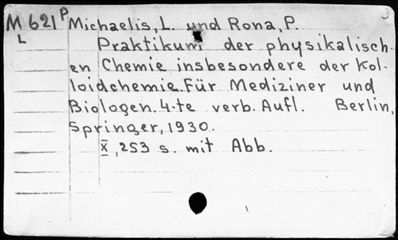 M 621 P Michaelis, L. und Rona, P.
L Praktikum der physikalisch-
en Chemie insbesondere der Kol-
loidchemie. Für Mediziner und
Biologen. 4-te verb. Aufl. Berlin,
Springer, 1930.
X, 253 s. mit Abb.